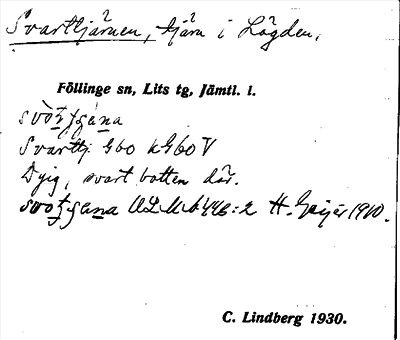 Svarttjärnen, tjärn i Lögden,
Föllinge sn, Lits tg, Jämtl. l.
Svarttj. G60 kG60V
Dyig, svart botten där.
ULMA 446:2 H. Geijer 1910.
C. Lindberg 1930.